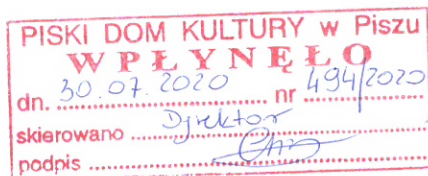 PISKI DOM KULTURY w Piszu
WPŁYNĘŁO
dn. 30.07.2020 nr 494/2020
skierowano Dyrektor
podpis